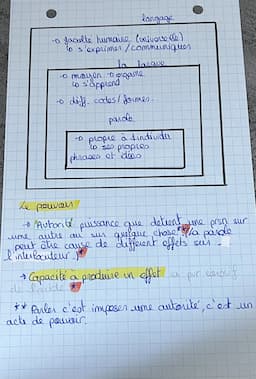 langage
→ faculté humaine (universelle)
↳ s'exprimer / communiquer
la langue
→ moyen + organe
↳ s'apprend
→ diff. codes / formes.
parole
→ propre à l'individu
↳ ses propres
phrases et idées
Le pouvoir
→ Autorité, puissance que détient une prsn sur
une autre ou sur quelque chose * (la parole
peut être cause de différent effets sur
l'interlocuteur.) *
→ Capacité à produire un effet
de *
** Parler c'est imposer une autorité, c'est un
acte de pouvoir.